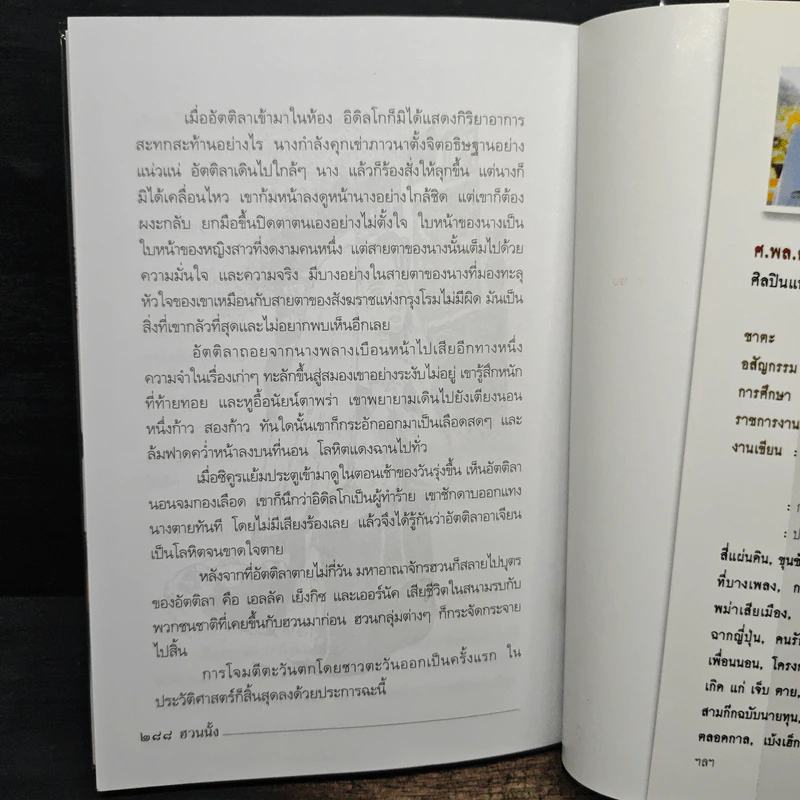 เมื่ออัตติลาเข้ามาในห้อง อิดิลโกก็มิได้แสดงกิริยาอาการ
สะทกสะท้านอย่างไร นางกำลังคุกเข่าภาวนาตั้งจิตอธิษฐานอย่าง
แน่วแน่ อัตติลาเดินไปใกล้ๆ นาง แล้วก็ร้องสั่งให้ลุกขึ้น แต่นางก็
มิได้เคลื่อนไหว เขาก้มหน้าลงดูหน้านางอย่างใกล้ชิด แต่เขาก็ต้อง
ผงะกลับ ยกมือขึ้นปิดตาตนเองอย่างไม่ตั้งใจ ใบหน้าของนางเป็น
ใบหน้าของหญิงสาวที่งดงามคนหนึ่ง แต่สายตาของนางนั้นเต็มไปด้วย
ความมั่นใจ และความจริง มีบางอย่างในสายตาของนางที่มองทะลุ
หัวใจของเขาเหมือนกับสายตาของสังฆราชแห่งกรุงโรมไม่มีผิด มันเป็น
สิ่งที่เขากลัวที่สุดและไม่อยากพบเห็นอีกเลย
อัตติลาถอยจากนางพลางเบือนหน้าไปเสียอีกทางหนึ่ง
ความจำในเรื่องเก่าๆ ทะลักขึ้นสู่สมองเขาอย่างระงับไม่อยู่ เขารู้สึกหนัก
ที่ท้ายทอย และหูอื้อนัยน์ตาพร่า เขาพยายามเดินไปยังเตียงนอน
หนึ่งก้าว สองก้าว ทันใดนั้นเขาก็กระอักออกมาเป็นเลือดสดๆ และ
ล้มฟาดคว่ำหน้าลงบนที่นอน โลหิตแดงฉานไปทั่ว
เมื่อซิคูรแย้มประตูเข้ามาดูในตอนเช้าของวันรุ่งขึ้น เห็นอัตติลา
นอนจมกองเลือด เขาก็นึกว่าอิดิลโกเป็นผู้ทำร้าย เขาชักดาบออกแทง
นางตายทันที โดยไม่มีเสียงร้องเลย แล้วจึงได้รู้กันว่าอัตติลาอาเจียน
เป็นโลหิตจนขาดใจตาย
หลังจากที่อัตติลาตายไม่กี่วัน มหาอาณาจักรฮวนก็สลายไปบุตร
ของอัตติลา คือ เอลลัค เย็งกิซ และเออร์นัค เสียชีวิตในสนามรบกับ
พวกชนชาติที่เคยขึ้นกับฮวนมาก่อน ฮวนกลุ่มต่างๆ ก็กระจัดกระจาย
ไปสิ้น
การโจมตีตะวันตกโดยชาวตะวันออกเป็นครั้งแรก ใน
ประวัติศาสตร์ก็สิ้นสุดลงด้วยประการฉะนี้
๒๘๘ ฮวนนั้ง
ศ.พล.
ศิลปินแ
ชาตะ
อสัญกรรม
การศึกษา
ราชการงาน
งานเขียน :
: ก
: ป
สี่แผ่นดิน, ขุนช้
ที่บางเพลง, ก
พม่าเสียเมือง,
ฉากญี่ปุ่น, คนรั
เพื่อนนอน, โครงก
เกิด แก่ เจ็บ ตาย,
สามก๊กฉบับนายทุน,
ตลอดกาล, เบ้งเฮ็ก
ฯลฯ